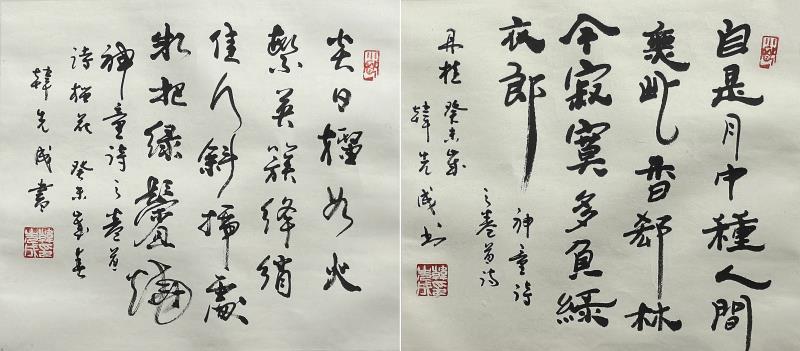 自是月中種人間
莫比香郄林
今寂寞多負綠
衣郎
神童詩
之卷首詩
丹桂 癸未歲
韓先成書
炎日耀如火
繁英簇絳綃
佳人斜插處
把綠鬢燒
神童詩之卷首
詩榴花 癸未歲冬
韓先成書